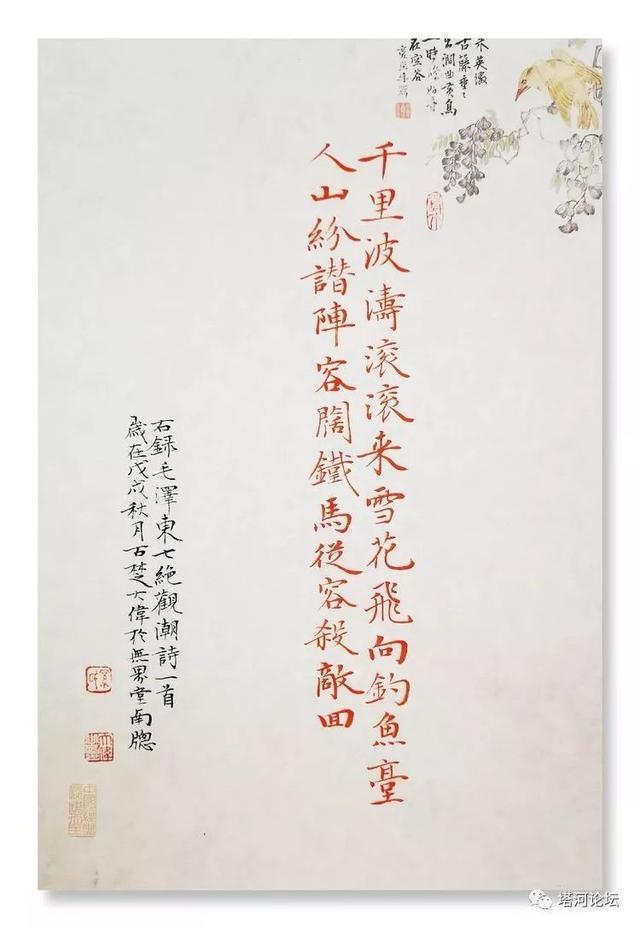 千里波濤滚滚来雪花飛向釣魚臺
人山紛譛陣容闊鐵馬從容殺敵回
右録毛澤東七絶觀潮詩一首
歲在戊戌秋月古楚大偉於無界堂南牕
塔河论坛